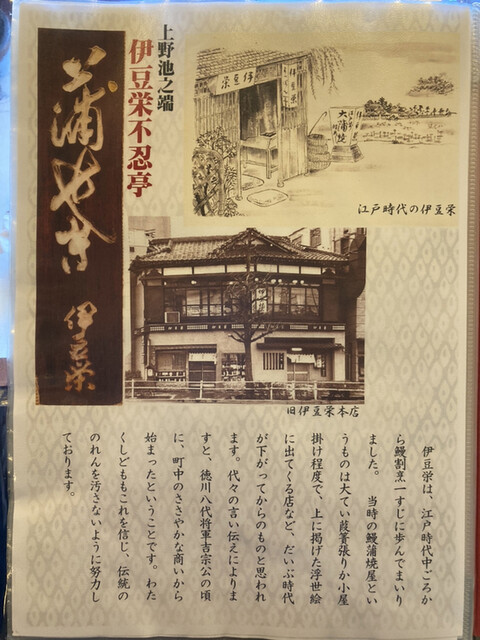 上野池之端
伊豆栄不忍亭
伊豆栄
伊豆栄
伊豆栄
大蒲焼
江戸時代の伊豆栄
旧伊豆栄本店
伊豆栄は、江戸時代中ごろか
ら鰻割烹一すじに歩んでまいり
ました。　当時の鰻蒲焼屋とい
うものは大てい葭簀張りか小屋
掛け程度で、上に掲げた浮世絵
に出てくる店など、だいぶ時代
が下がってからのものと思われ
ます。代々の言い伝えによりま
すと、徳川八代将軍吉宗公の頃
に、町中のささやかな商いから
始まったということです。わた
くしどももこれを信じ、伝統の
のれんを汚さないように努力し
ております。